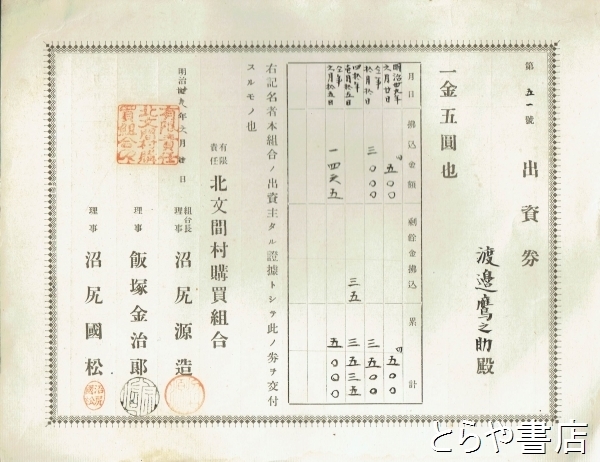 第五一號
出資券
渡邉鷹之助殿
一金五圓也
月日 拂込金額 剰餘金拂込 累計
明治卅九年六月廿日 五〇〇 五〇〇
仝年拾月拾日 三〇〇〇 三五〇〇
四拾年壱月拾五日 三五 三五三五
仝年六月拾五日 一四六五 五〇〇〇
右記名者本組合ノ出資主タル證據トシテ此ノ券ヲ交付
スルモノ也
明治卅九年六月廿日
有限責任 北文間村購買組合
組合長
理事 沼尻源造
理事 飯塚金治郎
理事 沼尻國松
有限責任
北文間村購
買組合之印
とらや書店